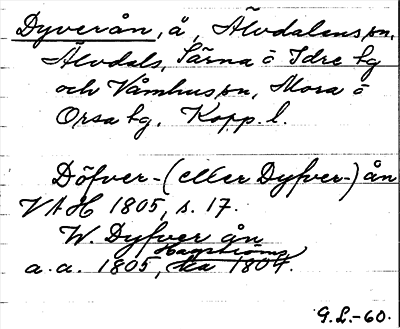 Dyverån, å, Älvdalens sn,
Älvdals, Särna o Idre tg
och Våmhus sn, Mora o
Orsa tg, Kopp. l.
Döfver-(eller Dyfver-)ån
VAH 1805, s. 17.
W. Dyfver ån
Hagström
a. a. 1805, ka 1804.
G.L.-60.